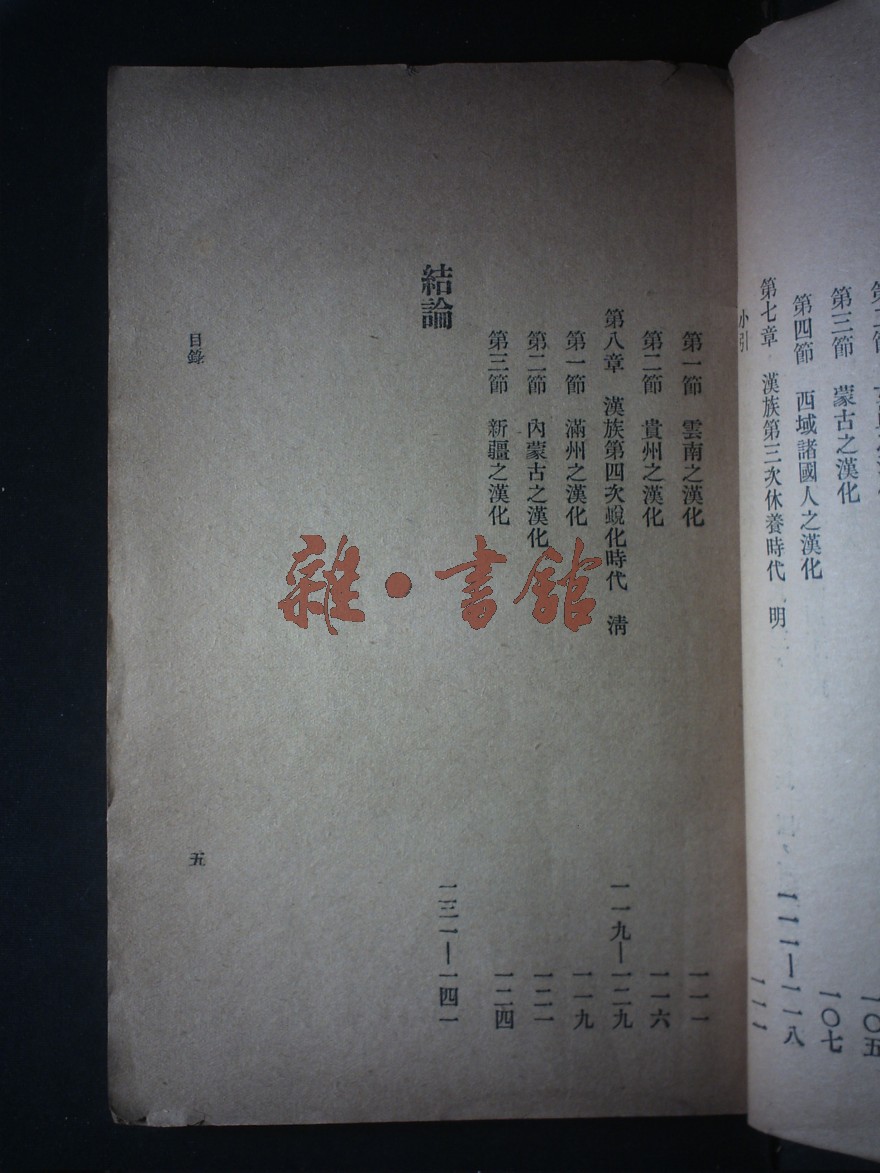 第三節　蒙古之漢化　一〇五
第四節　西域諸國人之漢化　一〇七
第七章　漢族第三次休養時代　明　一一一—一一八
小引　一一一
第一節　雲南之漢化　一一一
第二節　貴州之漢化　一一六
第八章　漢族第四次蛻化時代　清　一一九—一二九
第一節　滿州之漢化　一一九
第二節　內蒙古之漢化　一二一
第三節　新疆之漢化　一二四
結論　一三一—一四一
目錄　五
雜·書館